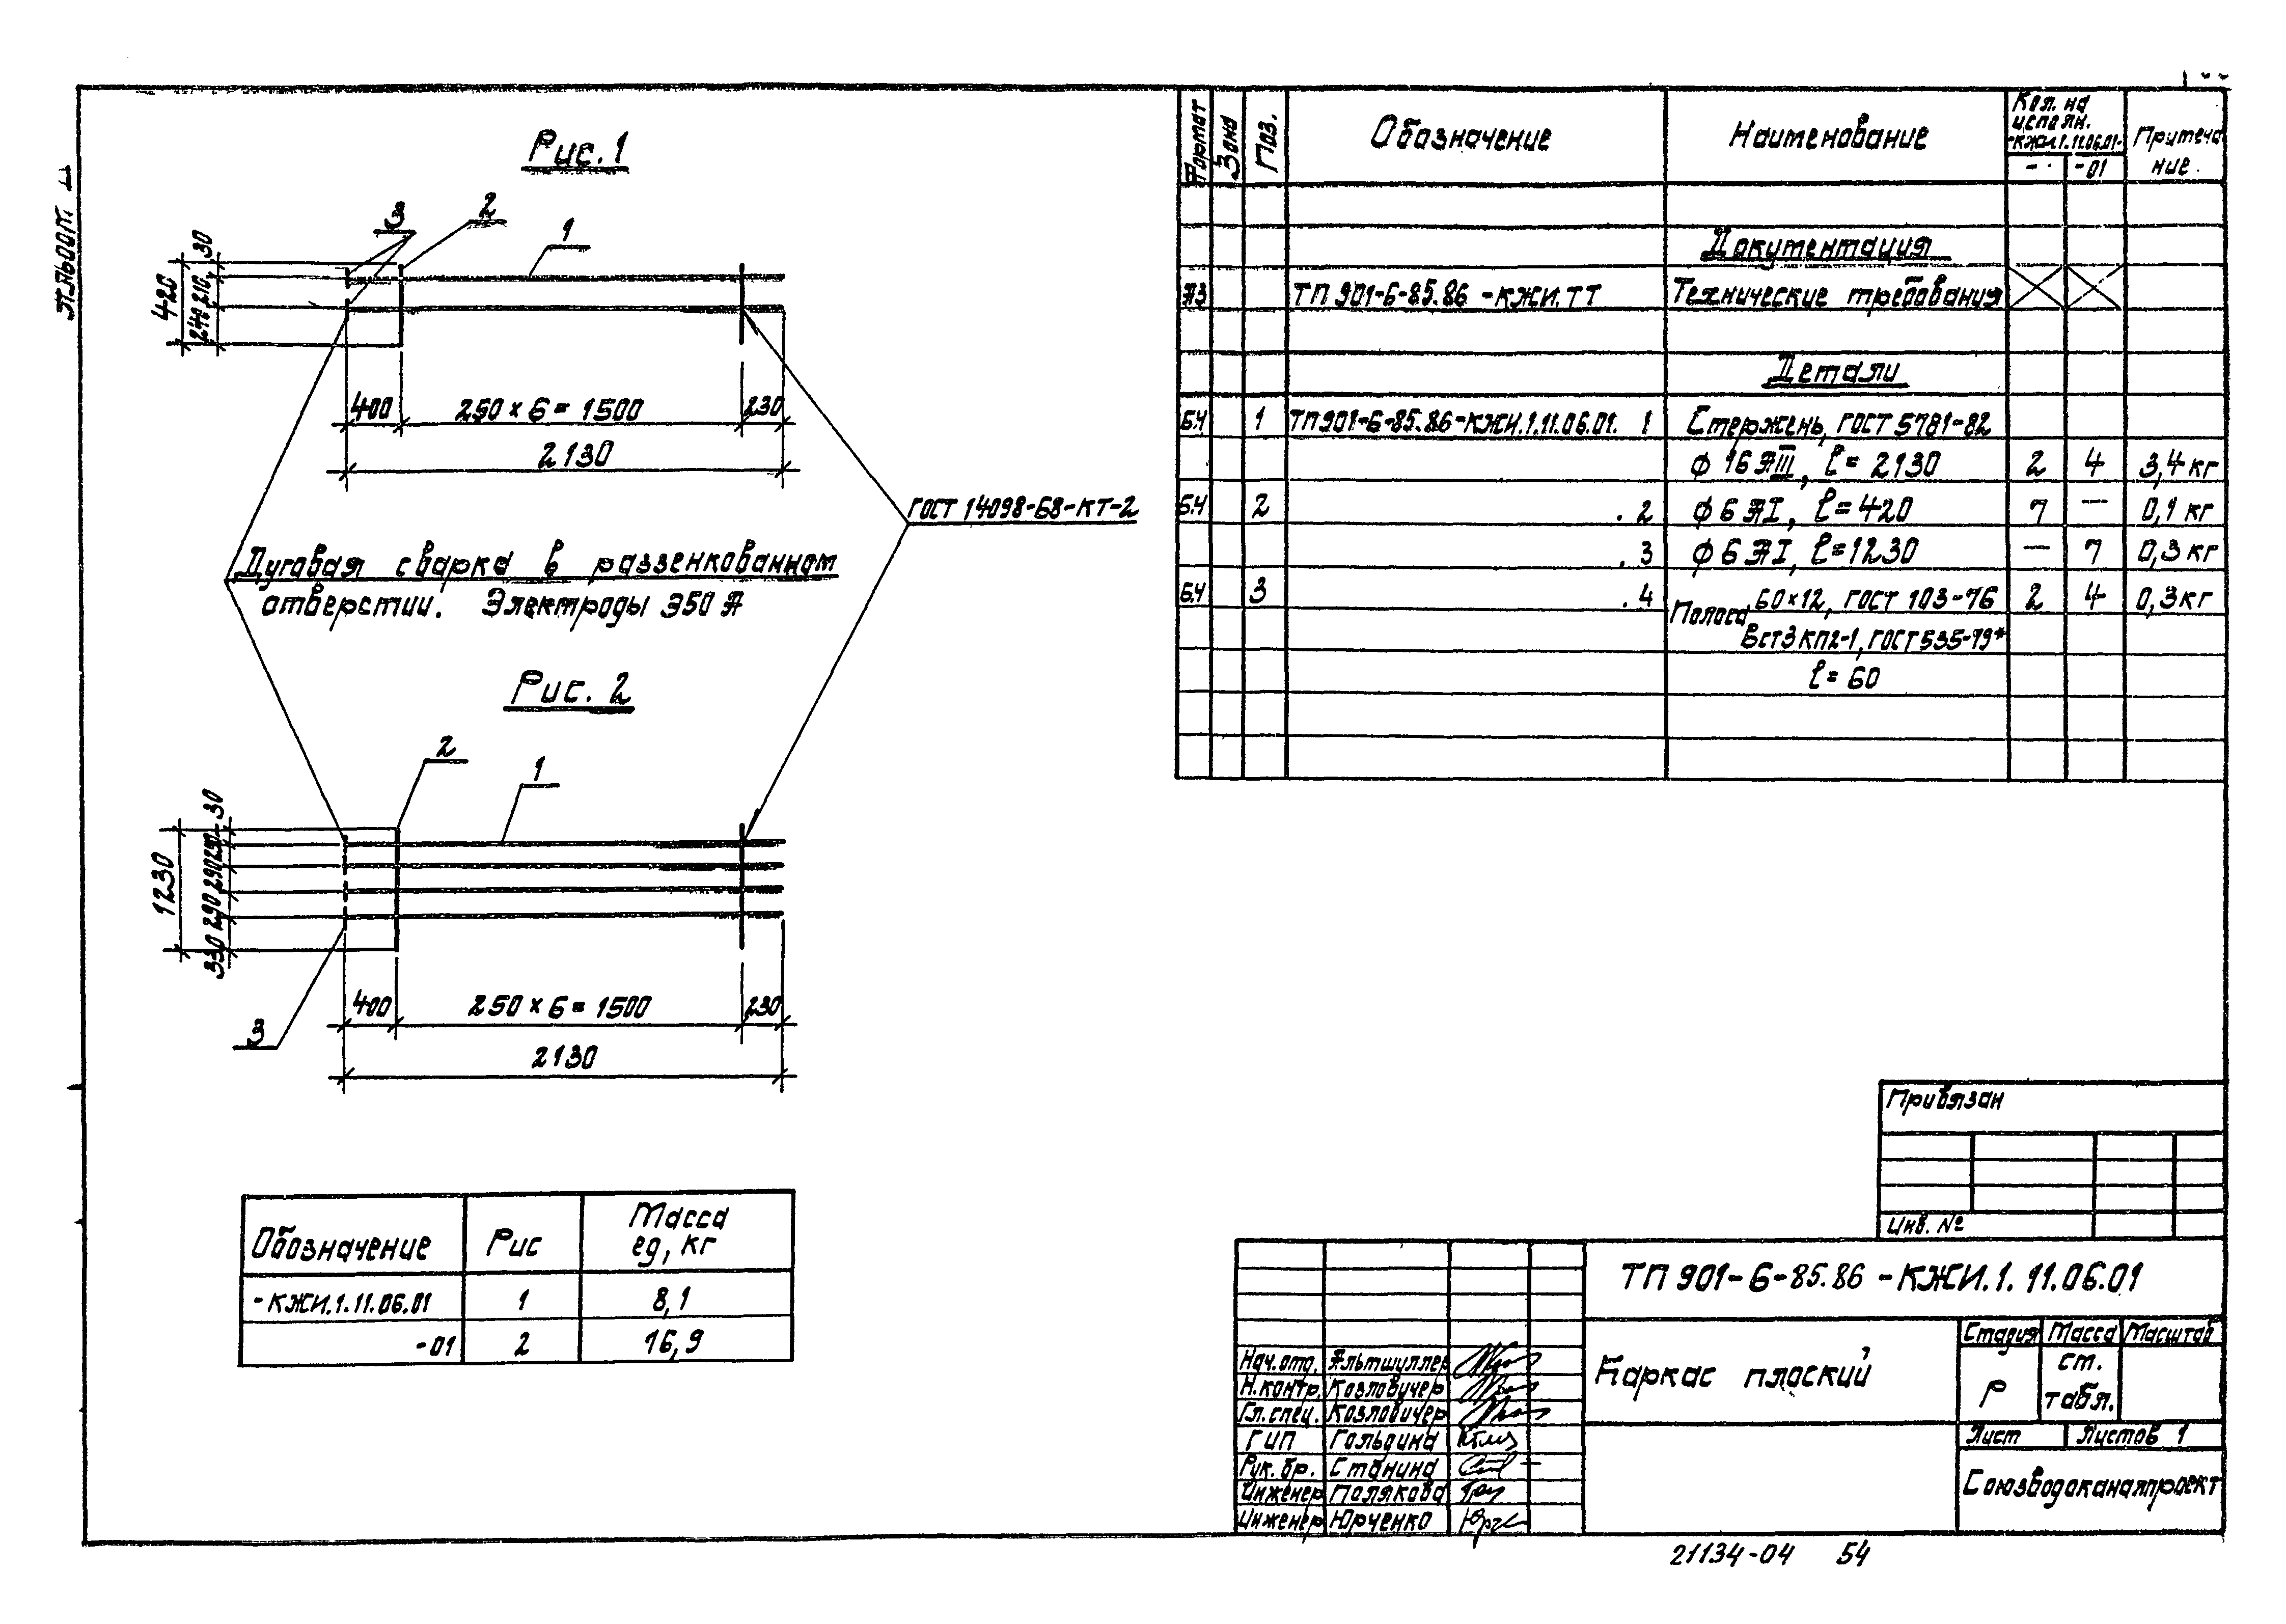 Рис. 1
3
2
1
30
210
240
420
400
250 × 6 = 1500
230
2130
ГОСТ 14098-68-КТ-2
Дуговая сварка в раззенкованном
отверстии. Электроды Э50 А
Рис. 2
2
1
30
290
290
290
330
1230
3
400
250 × 6 = 1500
230
2130
Обозначение Рис Масса ед, кг
-КЖИ.1.11.06.01 1 8,1
-01 2 16,9
Формат Зона Поз. Обозначение Наименование Кол. на исполн. -КЖИ.1.11.06.01- Примечание
- -01
Документация
А3 ТП 901-6-85.86 -КЖИ.ТТ Технические требования
Детали
БЧ 1 ТП901-6-85.86-КЖИ.1.11.06.01. 1 Стержень, ГОСТ 5781-82
ф 16 АIII, ℓ= 2130 2 4 3,4 кг
БЧ 2 .2 ф 6 АI, ℓ=420 7 — 0,1 кг
.3 ф 6 АI, ℓ=1230 — 7 0,3 кг
БЧ 3 .4 Полоса 60×12, ГОСТ 103-76 2 4 0,3 кг
Вст3 кп2-1, ГОСТ 535-79*
ℓ= 60
Привязан
Инв. №
ТП 901-6-85.86 -КЖИ.1. 11.06.01
Каркас плоский
Стадия Масса Масштаб
Р ст. табл.
Лист Листов 1
Союзводоканалпроект
Нач.отд. Альтшуллер
Н.контр. Козловичер
Гл.спец. Козловичер
ГИП Гольдина
Рук. бр. Станина
Инженер Полякова
Инженер Юрченко
21134-04 54